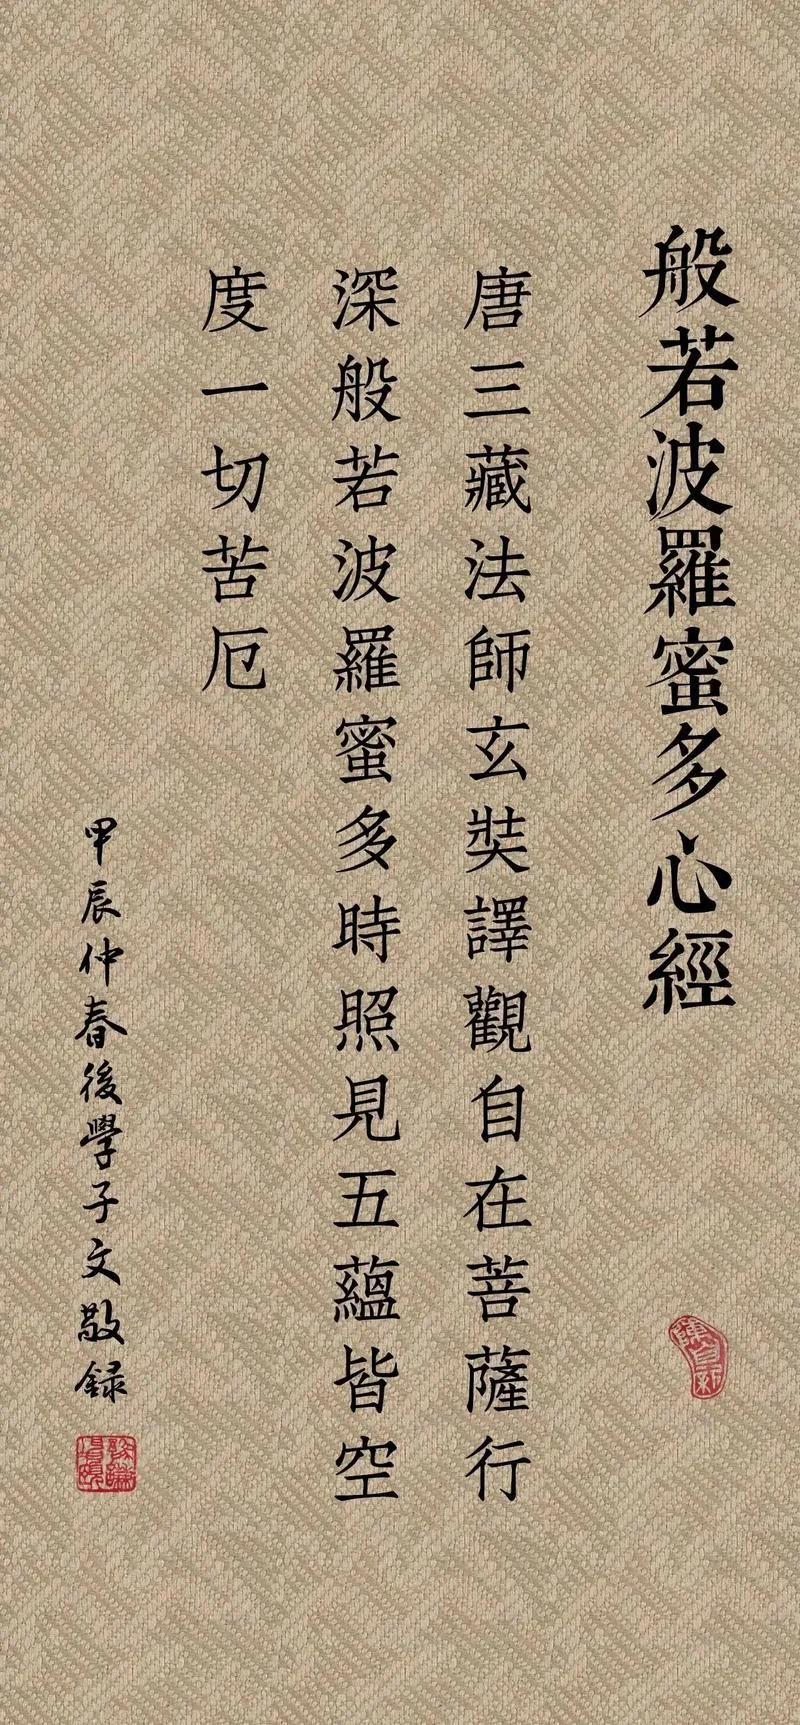 般若波羅蜜多心經
唐三藏法師玄奘譯觀自在菩薩行
深般若波羅蜜多時照見五蘊皆空
度一切苦厄
甲辰仲春後學子文敬録